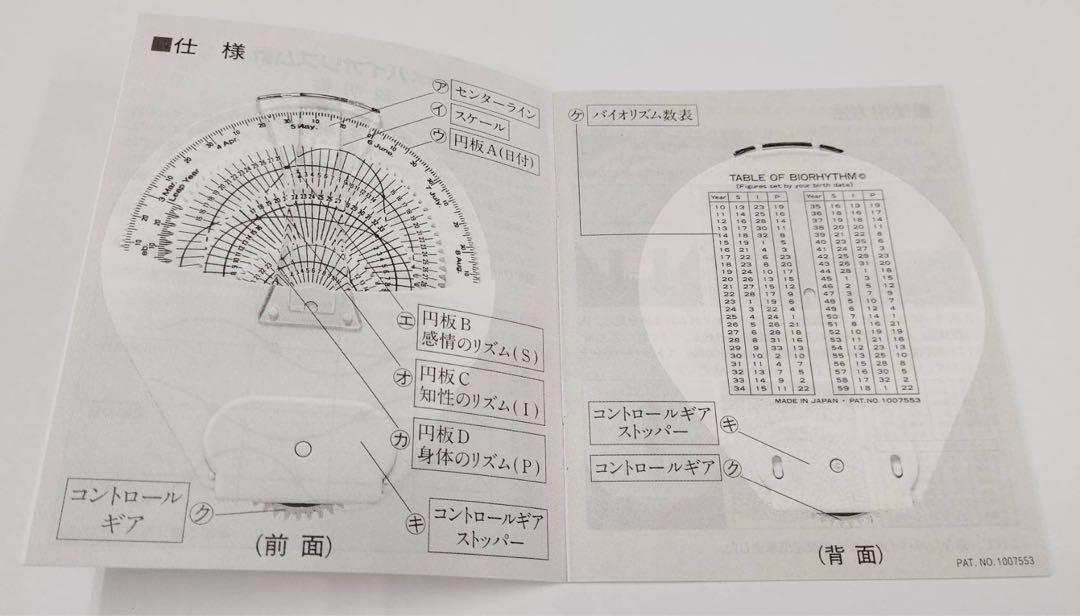 ■仕 様
㋐ センターライン
㋑ スケール
㋒ 円板A(日付)
3 Mar.
Leap Year
4 Apr.
5 May.
6 June.
7 July
8 Aug.
㋓ 円板B
感情のリズム(S)
㋔ 円板C
知性のリズム(I)
㋕ 円板D
身体のリズム(P)
㋖ コントロールギア
ストッパー
コントロール
ギア ㋗
(前 面)
㋘ バイオリズム数表
TABLE OF BIORHYTHM©
(Figures set by your birth date)
Year S I P Year S I P
10 13 23 19 35 16 13 19
11 14 25 16 36 18 16 17
12 16 28 14 37 19 18 14
13 17 30 11 38 20 20 11
14 18 32 8 39 21 22 8
15 19 1 5 40 23 25 6
16 21 4 3 41 24 27 3
17 22 6 42 25 29
18 23 8 20 43 26 31 20
19 24 10 17 44 28 1 18
20 26 13 15 45 1 3 15
21 27 15 12 46 2 5 12
22 28 17 9 47 3 7 9
23 1 19 6 48 5 10 7
24 3 22 4 49 6 12 4
25 4 24 1 50 7 14 1
26 5 26 21 51 8 16 21
27 6 28 18 52 10 19 19
28 8 31 16 53 11 21 16
29 9 33 13 54 12 23 13
30 10 2 10 55 13 25 10
31 11 4 7 56 15 28 8
32 13 7 5 57 16 30 5
33 14 9 2 58 17 32 2
34 15 11 22 59 18 1 22
MADE IN JAPAN・PAT.NO.1007553
コントロールギア
ストッパー ㋖
コントロールギア ㋗
(背 面)
PAT. NO. 1007553